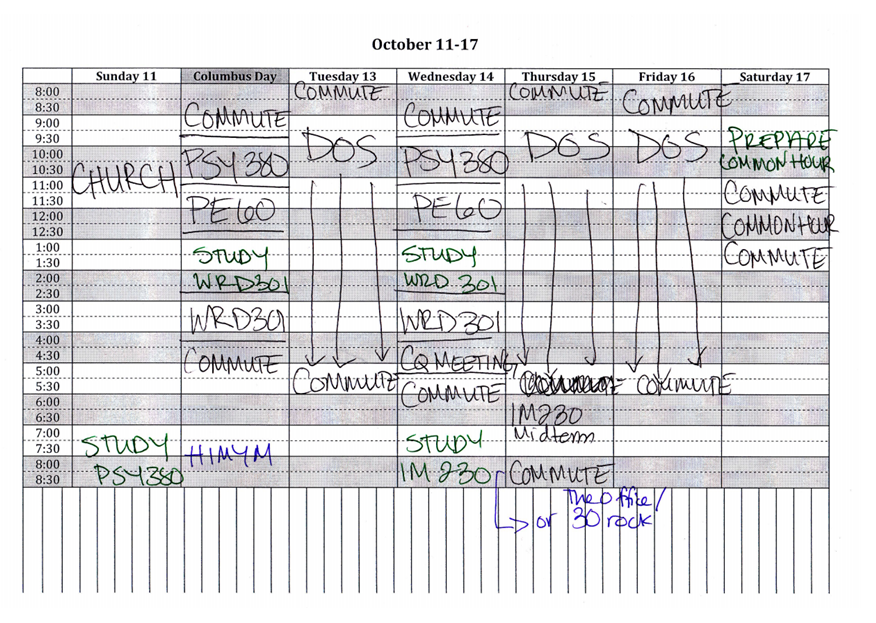 October 11-17
Sunday 11 Columbus Day Tuesday 13 Wednesday 14 Thursday 15 Friday 16 Saturday 17
8:00 COMMUTE COMMUTE
8:30 COMMUTE
9:00 COMMUTE COMMUTE
9:30 DOS DOS DOS PREPARE
10:00 PSY 380 PSY 380 COMMON HOUR
10:30
11:00 CHURCH COMMUTE
11:30 PE60 PE60
12:00 COMMON HOUR
12:30
1:00 STUDY STUDY COMMUTE
1:30
2:00 WRD301 WRD 301
2:30
3:00
3:30 WRD301 WRD 301
4:00
4:30 COMMUTE CQ MEETING
5:00
5:30 COMMUTE COMMUTE COMMUTE
6:00
6:30 IM230
7:00 Midterm
7:30 STUDY HIMYM STUDY
8:00
8:30 PSY380 IM 230 COMMUTE
The Office/
or 30 rock